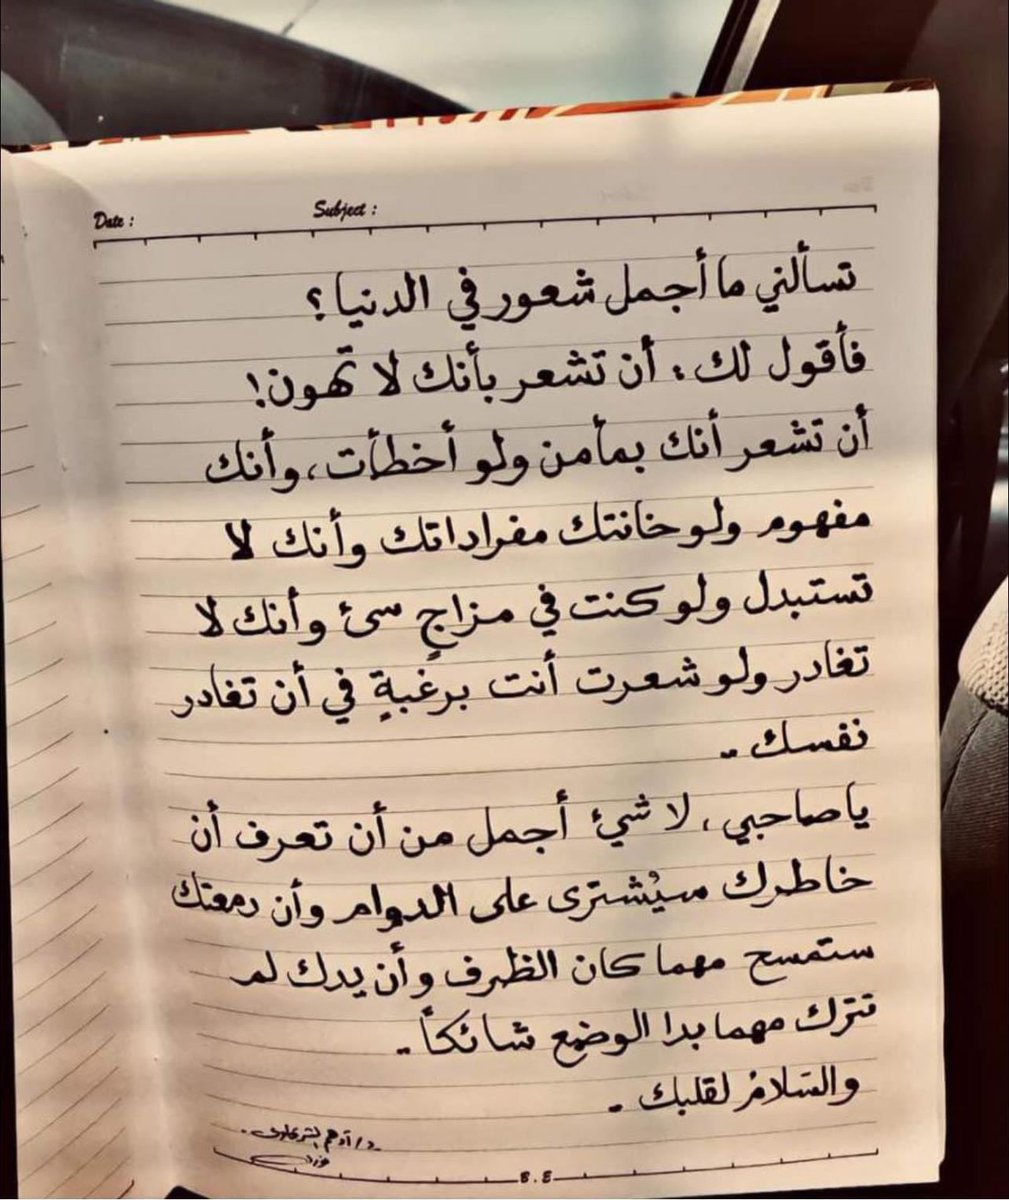 Date : Subject :
تسألني ما أجمل شعور في الدنيا ؟
فأقول لك : أن تشعر بأنك لا تهون !
أن تشعر أنك بمأمن ولو أخطأت ، وأنك
مفهوم ولو خانتك مفراداتك وأنك لا
تستبدل ولو كنت في مزاجٍ سئ وأنك لا
تغادر ولو شعرت أنت برغبةٍ في أن تغادر
نفسك ..
ياصاحبي ، لا شيء أجمل من أن تعرف أن
خاطرك سيُشترى على الدوام وأن دمعتك
ستمسح مهما كان الظرف وأن يدك لم
تترك مهما بدا الوضع شائكاً ..
والسلامُ لقلبك .
د/ أدهم